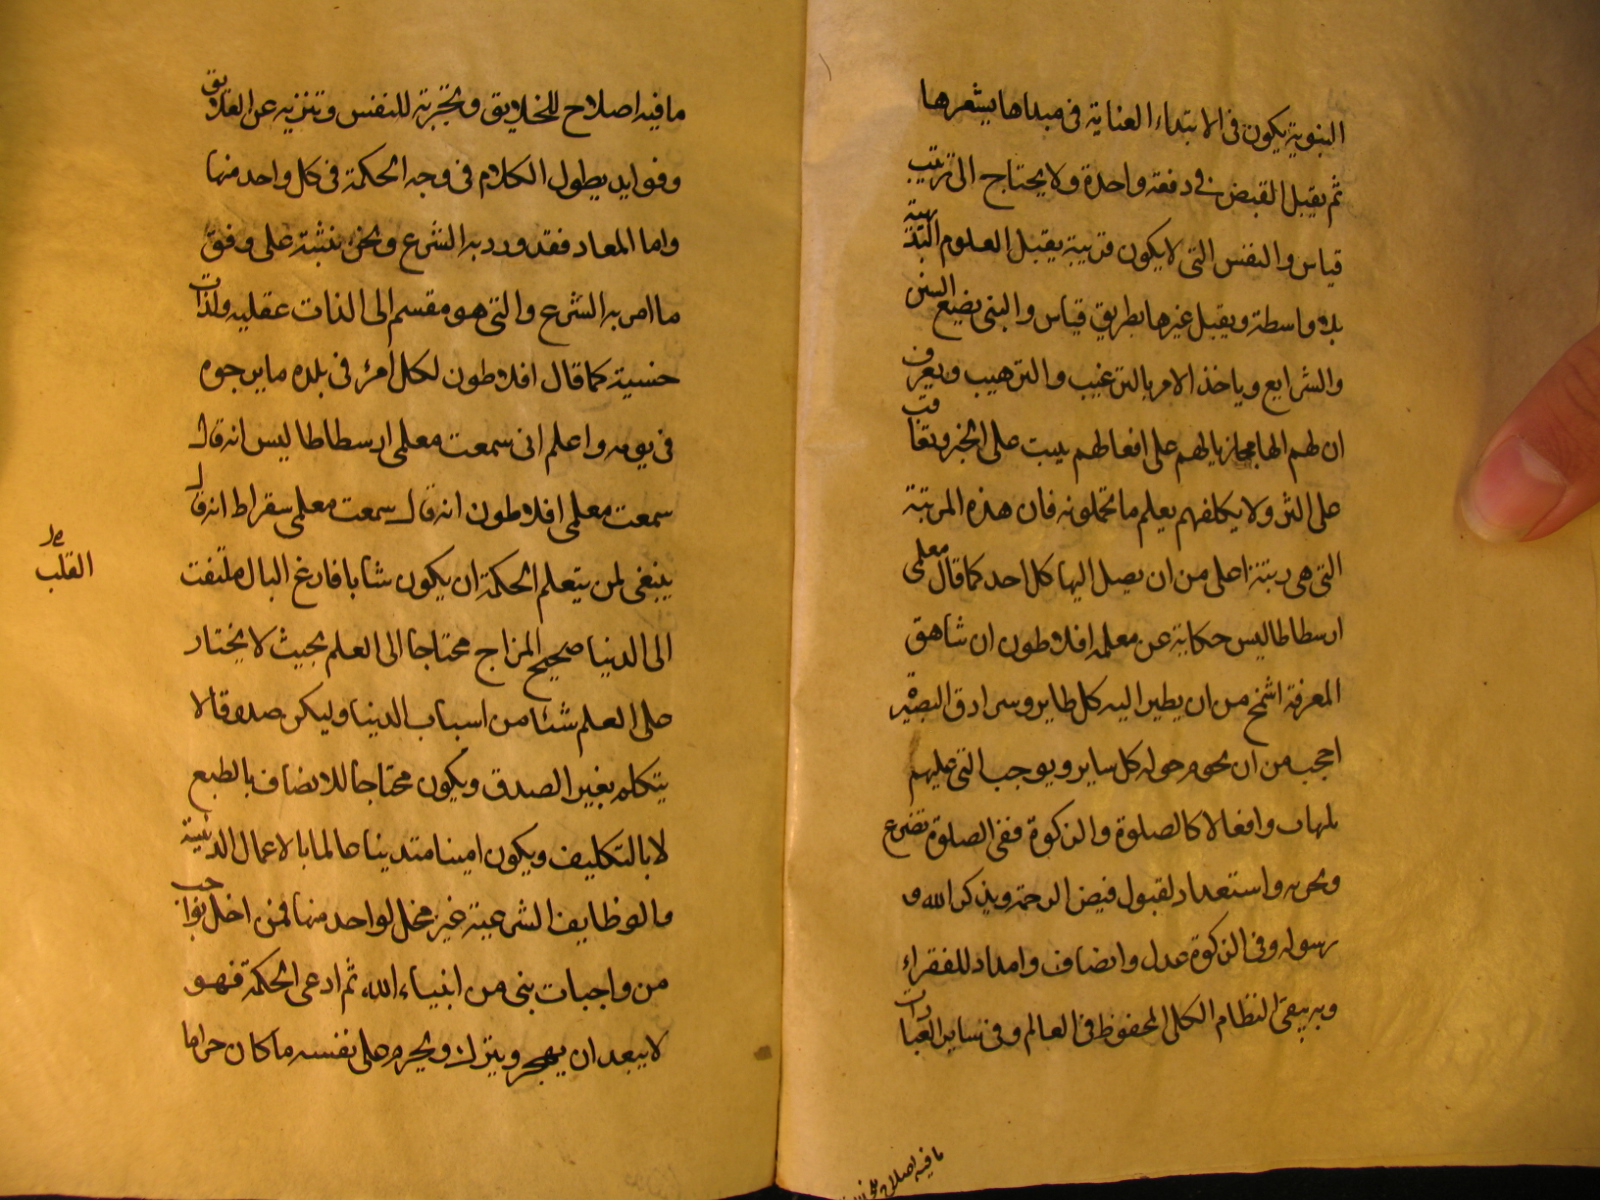 النبوية يكون في الابتداء العناية في مبداها يشعرها
ثم يقبل القبض في دفعة واحدة ولا يحتاج الى ترتيب
قياس والنفس التى لا يكون قريبة يقبل العلوم البديهية
بلا واسطة ويقبل غيرها بطريق قياس والنبى يضع السنن
والشرايع وياخذ الامر بالترغيب والترهيب ويعرف
ان لهم الها مجازيا لهم على افعالهم يثيب على الخير ويعاقب
على الشر ولا يكلفهم بعلم ما تحملونه فان هذه المرتبة
التى هى رتبة اعلى من ان يصل اليها كل احد كما قال معلمى
ارسطاطاليس حكاية عن معلمه افلاطون ان شاهق
المعرفة اشمخ من ان يطير اليه كل طاير وسرادق البصيرة
احجب من ان يحوم حوله كل ساير ويوجب التى عليهم
وافعالا كالصلوة والزكوة ففى الصلوة تضرع
واستعداد لقبول فيض الرحمة ويذكر الله و
رسوله وفى الزكوة عدل وانصاف وامداد للفقراء
وبه يبقى النظام الكلى المحفوظ فى العالم وفى ساير العبادات
ما فيه اصلاح
ما فيه اصلاح للخلايق وتجربة للنفس وتنزيه عن العلايق
وفوايد يطول الكلام فى وجه الحكمة فى كل واحد منها
واما المعاد فقد ورد به الشرع ونحن نثبته على وفق
ما امر به الشرع والتى هو مقسم الى لذات عقليه ولذات
حسية كما قال افلاطون لكل امرئ فى بلده ما يرجوه
فى يومه واعلم انى سمعت معلمى ارسطاطاليس انه قال
سمعت معلمى افلاطون انه قال سمعت معلمى سقراط انه قال
ينبغى لمن يتعلم الحكمة ان يكون شابا فارغ البال ملتفت
القلب
الى الدنيا صحيح المزاج محتاجا الى العلم بحيث لا يختار
على العلم شئا من اسباب الدنيا وليكن صدوقا لا
يتكلم بغير الصدق ويكون محتاجا للانصاف بالطبع
لا بالتكليف ويكون امينا متدينا عالما بالاعمال الدينية
والوظايف الشرعية غير مخل لواحد منها فمن اخل بواجب
من واجبات نبى من انبياء الله ثم ادعى الحكمة فهو
لا يبعد ان يهجر ويترك ويحرم على نفسه ما كان حراما